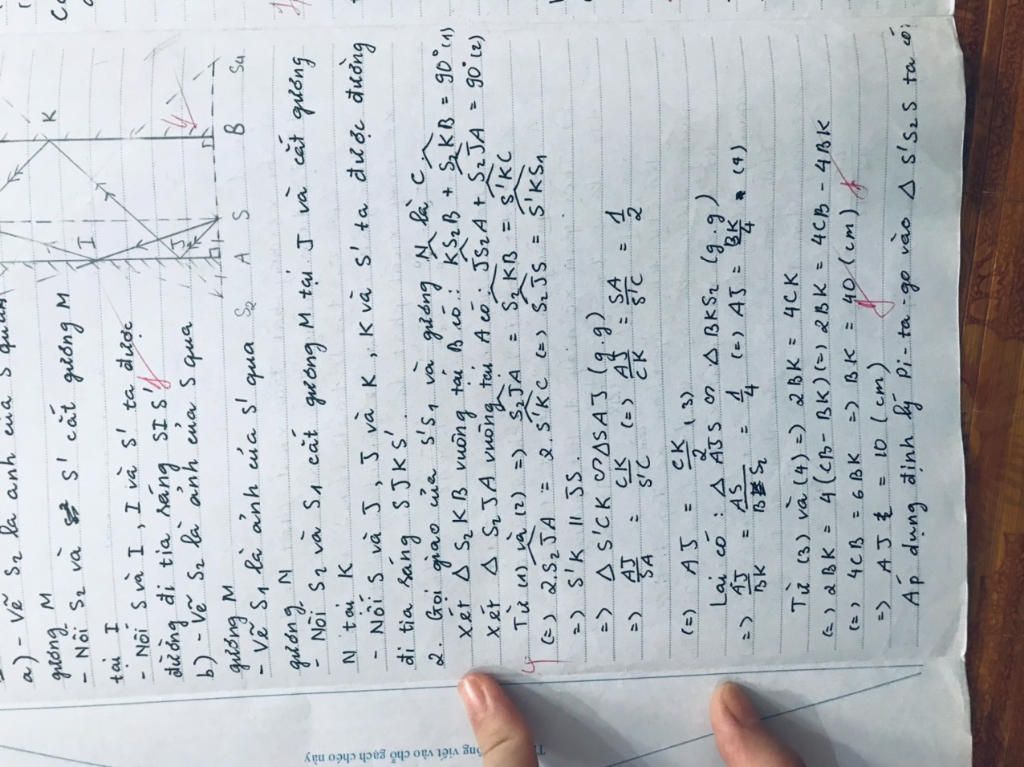 a) - Vẽ S₂ là ảnh của S qua
gương M
- Nối S₂ và S' cắt gương M
tại I
- Nối S và I, I và S' ta được
đường đi tia sáng SIS'
b) - Vẽ S₂ là ảnh của S qua
gương M
- Vẽ S₁ là ảnh của S' qua
gương N
- Nối S₂ và S₁ cắt gương M tại J và cắt gương
N tại K
- Nối S và J, J và K, K và S' ta được đường
đi tia sáng SJKS'
2. Gọi giao của S'S₁ và gương N là C
Xét △ S₂KB vuông tại B có: KS₂B + S₂KB = 90° (1)
Xét △ S₂JA vuông tại A có: JS₂A + S₂JA = 90° (2)
Từ (1) và (2) => S₂JA = S₂KB = S'KC
(=) 2.S₂JA = 2.S'KC (=) S₂JS = S'KS₁
=) S'K || JS.
=> △ S'CK ∽ △SAJ (g.g)
=> AJ/SA = CK/S'C (=) AJ/CK = SA/S'C = 1/2
(=) AJ = CK/2 (3)
Lại có: △ AJS ∽ △ BKS₂ (g.g)
=> AJ/BK = AS/BS₂ = 1/4 (=) AJ = BK/4 (4)
Từ (3) và (4) =) 2BK = 4CK
(=) 2BK = 4(CB - BK) (=) 2BK = 4CB - 4BK
(=) 4CB = 6BK => BK = 40 (cm)
=> AJ = 10 (cm)
Áp dụng định lý Pi-ta-go vào △ S'S₂S ta có
K
I
J
S₂ A S B S₄
ông viết vào chỗ gạch chéo này